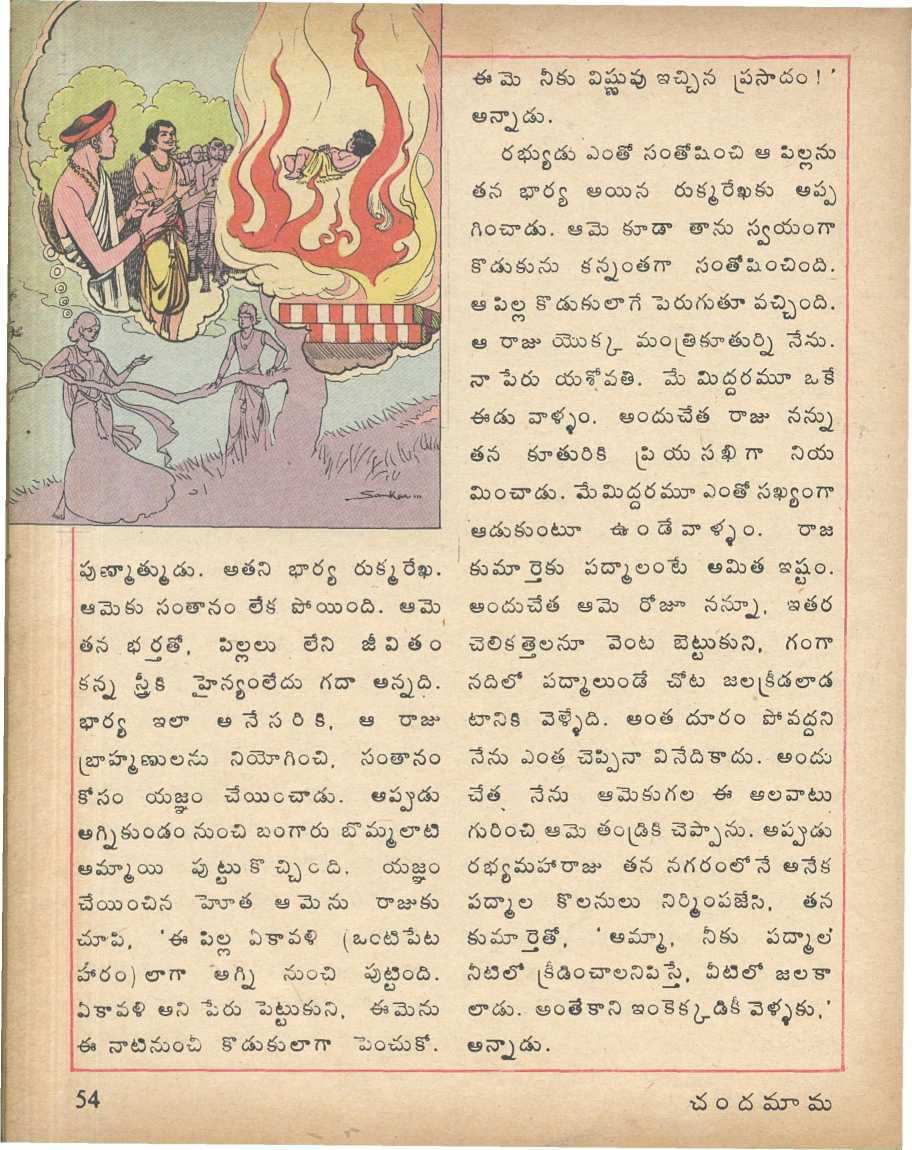 Sankar...
పుణ్యాత్ముడు. అతని భార్య రుక్మరేఖ.
ఆమెకు సంతానం లేక పోయింది. ఆమె
తన భర్తతో, పిల్లలు లేని జీవితం
కన్న స్త్రీకి హైన్యంలేదు గదా అన్నది.
భార్య ఇలా అనేసరికి, ఆ రాజు
బ్రాహ్మణులను నియోగించి, సంతానం
కోసం యజ్ఞం చేయించాడు. అప్పుడు
అగ్నికుండం నుంచి బంగారు బొమ్మలాటి
అమ్మాయి పుట్టుకొచ్చింది. యజ్ఞం
చేయించిన హెూత ఆమెను రాజుకు
చూపి, 'ఈ పిల్ల ఏకావళి (ఒంటిపేట
హారం) లాగా అగ్ని నుంచి పుట్టింది.
ఏకావళి అని పేరు పెట్టుకుని, ఈమెను
ఈ నాటినుంచీ కొడుకులాగా పెంచుకో.
ఈమె నీకు విష్ణువు ఇచ్చిన ప్రసాదం!'
అన్నాడు.
రభ్యుడు ఎంతో సంతోషించి ఆ పిల్లను
తన భార్య అయిన రుక్మరేఖకు అప్ప
గించాడు. ఆమె కూడా తాను స్వయంగా
కొడుకును కన్నంతగా సంతోషించింది.
ఆ పిల్ల కొడుకులాగే పెరుగుతూ వచ్చింది.
ఆ రాజు యొక్క మంత్రికూతుర్ని నేను.
నా పేరు యశోవతి. మే మిద్దరమూ ఒకే
ఈడు వాళ్ళం. అందుచేత రాజు నన్ను
తన కూతురికి ప్రియసఖిగా నియ
మించాడు. మేమిద్దరమూ ఎంతో సఖ్యంగా
ఆడుకుంటూ ఉండేవాళ్ళం. రాజ
కుమార్తెకు పద్మాలంటే అమిత ఇష్టం.
అందుచేత ఆమె రోజూ నన్నూ, ఇతర
చెలికత్తెలనూ వెంట బెట్టుకుని, గంగా
నదిలో పద్మాలుండే చోట జలక్రీడలాడ
టానికి వెళ్ళేది. అంత దూరం పోవద్దని
నేను ఎంత చెప్పినా వినేదికాదు. అందు
చేత నేను ఆమెకుగల ఈ అలవాటు
గురించి ఆమె తండ్రికి చెప్పాను. అప్పుడు
రభ్యమహారాజు తన నగరంలోనే అనేక
పద్మాల కొలనులు నిర్మింపజేసి, తన
కుమార్తెతో, 'అమ్మా, నీకు పద్మాల
నీటిలో క్రీడించాలనిపిస్తే, వీటిలో జలకా
లాడు. అంతేకాని ఇంకెక్కడికీ వెళ్ళకు,'
అన్నాడు.
54
చందమామ